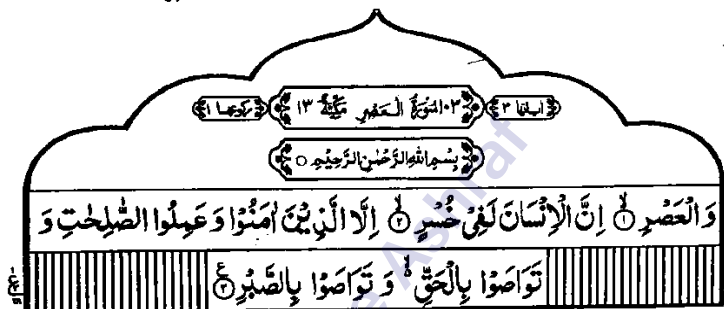 اٰیاتھا ۳ ۱۰۳ سُوْرَةُ الْعَصْرِ مَكِّيَّةٌ ۱۳ رکوعھا ۱
بِسْمِ اللّٰهِ الرَّحْمٰنِ الرَّحِيْمِ ○
وَ الْعَصْرِ ۙ﴿۱﴾ اِنَّ الْاِنْسَانَ لَفِيْ خُسْرٍ ۙ﴿۲﴾ اِلَّا الَّذِيْنَ اٰمَنُوْا وَ عَمِلُوا الصّٰلِحٰتِ وَ
تَوَاصَوْا بِالْحَقِّ ۙ۬ وَ تَوَاصَوْا بِالصَّبْرِ ﴿۳﴾ ع
Ashraf